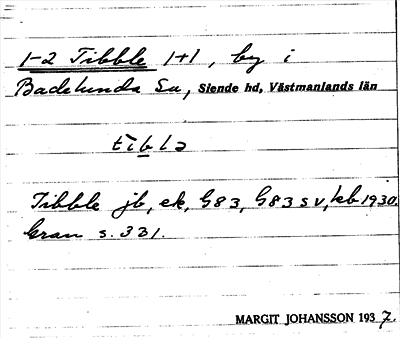 1-2 Tibble 1+1, by i
Badelunda Sn, Siende hd, Västmanlands län
tibla
Tibble jb, ek, G83, G83 sv, kb 1930.
Gran s. 331.
MARGIT JOHANSSON 1937.